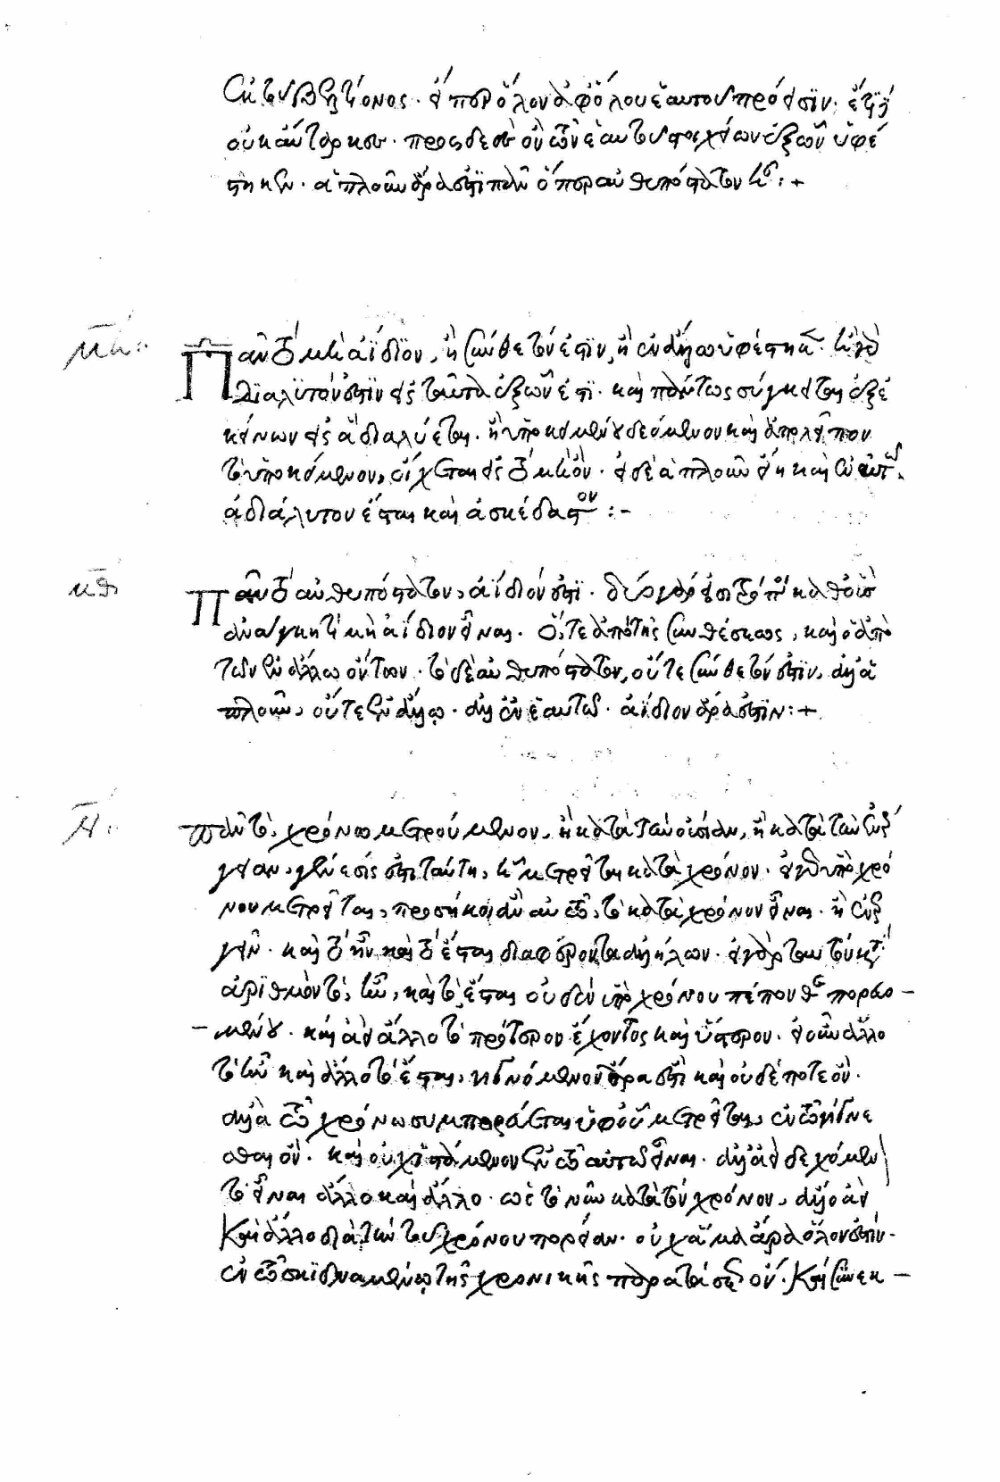 ἐκ τοῦ βελτίονος. εἴπερ ὅλον ἀφ' ὅλου ἑαυτοῦ πρόεισιν. ἔτι δὲ
οὐκ αὔταρκες. προσδεὲς ὂν τῶν ἑαυτοῦ στοιχείων ἐξ ὧν ὑφέ
στηκεν. ἁπλοῦν ἄρα ἐστὶ πᾶν ὅπερ αὐθυπόστατον ᾖ:+
μη:
Πᾶν τὸ μὴ ἀΐδιον, ἢ σύνθετόν ἐστιν, ἢ ἐν ἄλλῳ ὑφέστηκεν. ἢ γὰρ
διαλυτόν ἐστιν εἰς ταῦτα ἐξ ὧν ἐστι. καὶ πάντως σύγκειται ἐξ ἐ
κείνων εἰς ἃ διαλύεται. ἢ ὑποκειμένου δεόμενον καὶ ἀπολεῖπον
τὸ ὑποκείμενον, οἴχεται εἰς τὸ μὴ ὄν. εἰ δὲ ἁπλοῦν εἴη καὶ ἐν αὐτῷ,
ἀδιάλυτον ἔσται καὶ ἀσκέδαστον:-
μθ
Πᾶν τὸ αὐθυπόστατον, ἀΐδιόν ἐστι. δύο γάρ εἰσι τρόποι καθ' οὓς
ἀνάγκη τι μὴ ἀΐδιον εἶναι. ὅ, τε ἀπὸ τῆς συνθέσεως, καὶ ὁ ἀπὸ
τῶν ἐν ἄλλῳ ὄντων. τὸ δὲ αὐθυπόστατον, οὔτε σύνθετόν ἐστιν, ἀλλ' ἁ
πλοῦν, οὔτε ἐν ἄλλῳ. ἀλλ' ἐν ἑαυτῷ. ἀΐδιον ἄρα ἐστίν:+
ν:
Πᾶν τὸ χρόνῳ μετρούμενον, ἢ κατὰ τὴν οὐσίαν, ἢ κατὰ τὴν ἐνέρ
γειαν, γένεσίς ἐστι ταύτῃ, ᾗ μετρεῖται κατὰ χρόνον. εἰ γὰρ ὑπὸ χρό
νου μετρεῖται, προσήκοι ἂν αὐτῷ, τὸ κατὰ χρόνον εἶναι. ἢ ἐνερ
γεῖν. καὶ τὸ ἦν καὶ τὸ ἔσται διαφέροντα ἀλλήλων. εἰ γὰρ ταυτὸν κατ'
ἀριθμὸν τὸ, ἦν, καὶ τὸ ἔσται οὐδὲν ὑπὸ χρόνου πέπονθε πορευο-
-μένου. καὶ ἀεὶ ἄλλο τὸ πρότερον ἔχοντος καὶ ὕστερον. εἰ οὖν ἄλλο
τὸ ἦν καὶ ἄλλο τὸ ἔσται, γινόμενον ἄρα ἐστὶ καὶ οὐδέποτε ὄν.
ἀλλὰ τῷ χρόνῳ συμπορεύεται ὑφ' οὗ μετρεῖται, ἐν τῷ γίνε
σθαι ὄν. καὶ οὐχ ἱστάμενον ἐν τῷ αὐτῷ εἶναι. ἀλλ' ἀεὶ δεχόμενον
τὸ εἶναι ἄλλο καὶ ἄλλο. ὡς τὸ νῦν κατὰ τὸν χρόνον, ἄλλο ἀεὶ
καὶ ἄλλο διὰ τὴν τοῦ χρόνου πορείαν. οὐχ ἅμα ἄρα ὅλον ἐστίν.
ἐν τῷ σκιδναμένῳ τῆς χρονικῆς παρατάσεως ὄν. καὶ συνεκ-